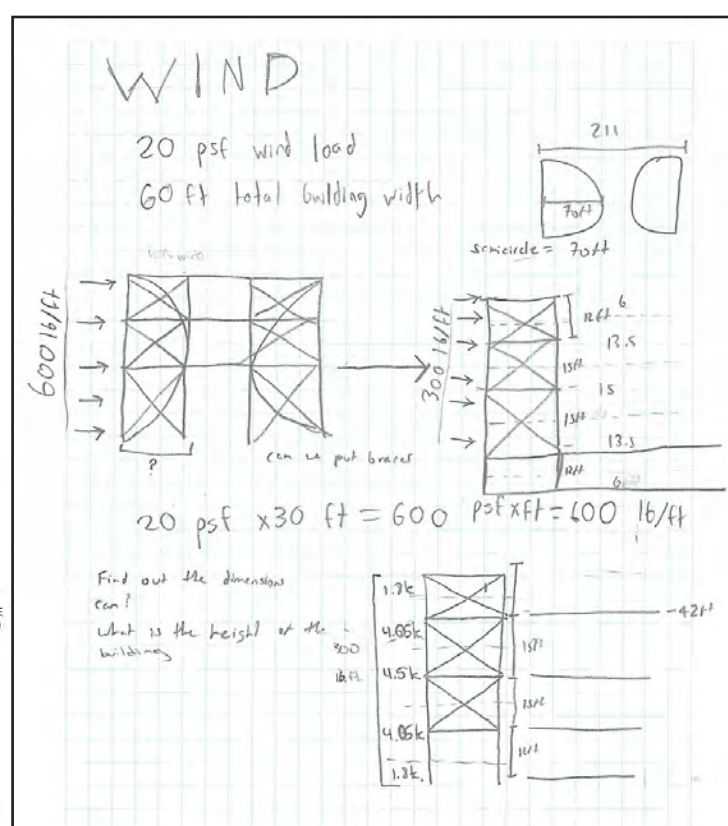 WIND
20 psf wind load
60 ft total building width
211
70ft
semicircle = 70ft
600 lb/ft
?
can we put braces
300 lb/ft
6
12ft
13.5
15ft
15
15ft
13.5
12ft
6
20 psf x30 ft = 600 psf x ft = 600 lb/ft
Find out the dimensions
can?
what is the height of the
building
300
lb.ft
1.8k
4.05k
4.5k
4.05k
1.8k
-42ft
15ft
15ft